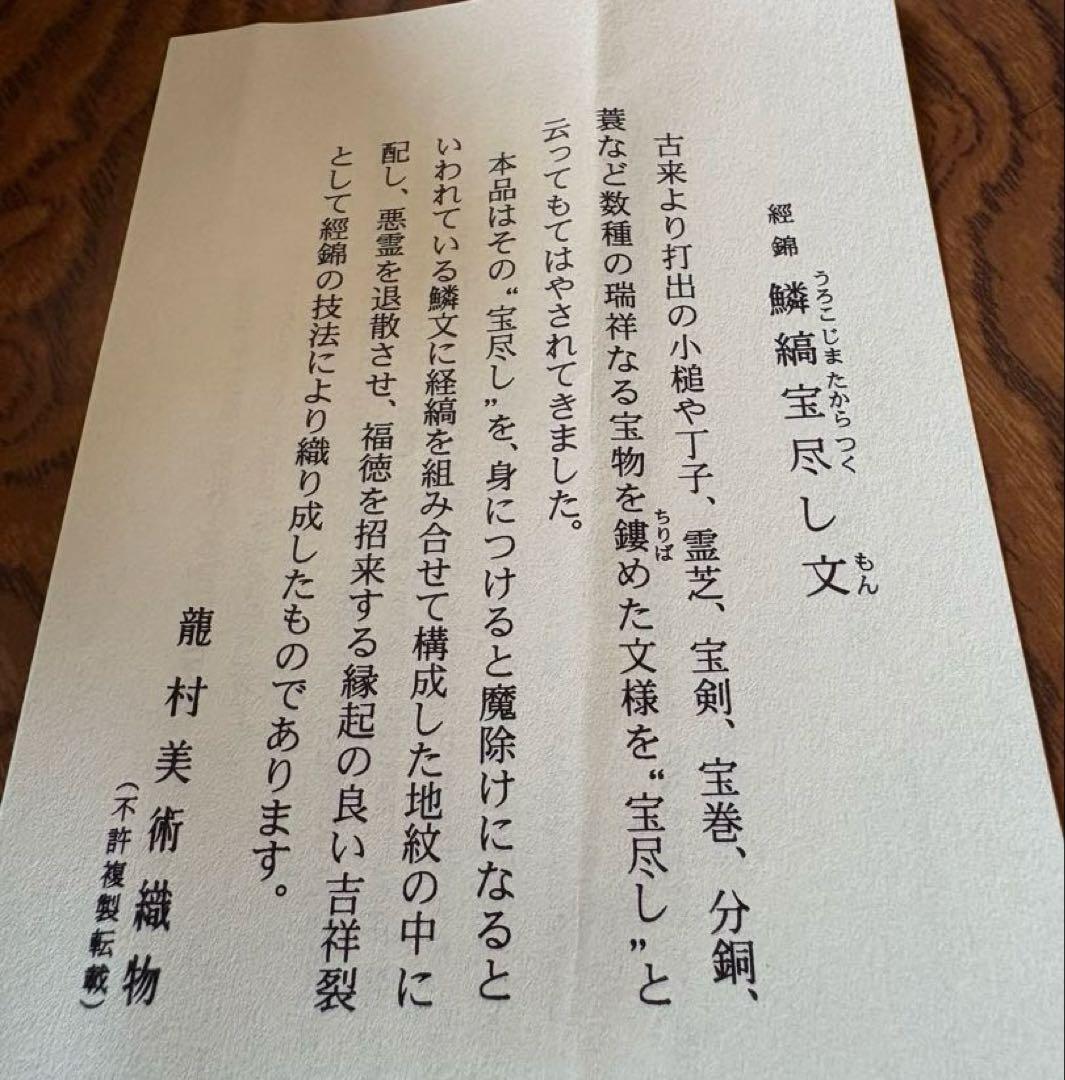 經錦 鱗縞宝尽し文
うろこじまたからつく もん
古来より打出の小槌や丁子、霊芝、宝剣、宝巻、分銅、
蓑など数種の瑞祥なる宝物を鏤めた文様を“宝尽し”と
ちりば
云ってもてはやされてきました。
本品はその“宝尽し”を、身につけると魔除けになると
いわれている鱗文に経縞を組み合せて構成した地紋の中に
配し、悪霊を退散させ、福徳を招来する縁起の良い吉祥裂
として經錦の技法により織り成したものであります。
龍村美術織物
(不許複製転載)